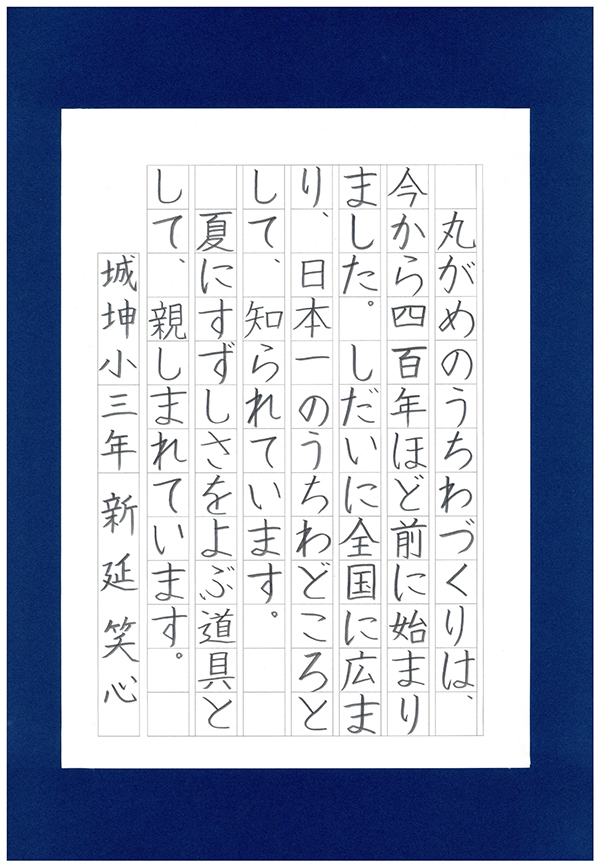 丸がめのうちわづくりは、
今から四百年ほど前に始まり
ました。しだいに全国に広ま
り、日本一のうちわどころと
して、知られています。
夏にすずしさをよぶ道具と
して、親しまれています。
城坤小三年 新延笑心